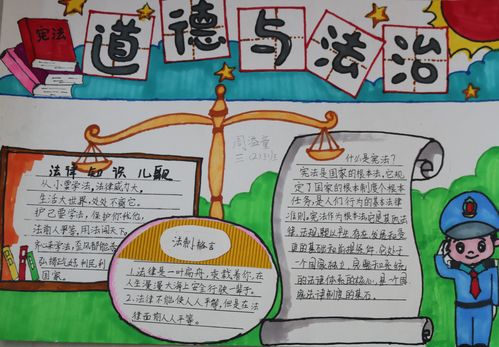 宪法
道德与法治
周溢童
三(2)班
法律知识儿歌
从小要学法,法律威力大,
生活大世界,处处不离它。
护己要学法,保护你我他,
法前人平等,用法闯天下。
弘扬践好利民利
国家。
法制格言
1.法律是一叶扁舟,承载着你,在
人生漫漫大海上安全行驶一辈子。
2.法律不能使人人平等,但是在法
律面前人人平等。
什么是宪法?
宪法是国家的根本法,它规
定了国家的根本制度个根本
任务,是人们行为的基本法律
准则,宪法作为根本法它是其他法
律、法规赖以产生、存在、发展和变
更的基础和前提条件,它处于
一个国家独立、完整和系统
的法律体系的核心,是一个国
家法律制度的基石。